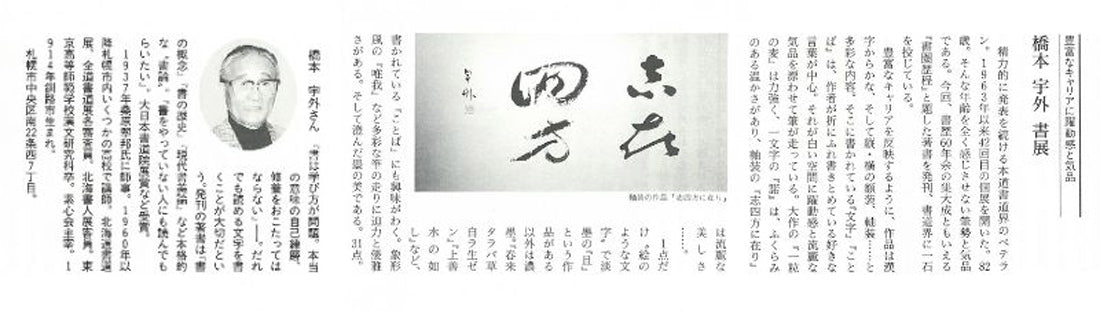 豊富なキャリアに躍動感と気品
橋本 宇外 書展
精力的に発表を続ける本道書道界のベテラ
ン。1963年以来42回目の個展を開いた。82
歳。そんな年齢を全く感じさせない筆勢と気品
である。今回、書歴60年余の集大成ともいえる
『書園歴程』と題した著書を発刊、書道界に一石
を投じている。
豊富なキャリアを反映するように、作品は漢
字からかな、そして縦・横の額装、軸装……と
多彩な内容。そこに書かれている“文字”“こと
ば”は、作者が折にふれ書きとめている好きな
言葉が中心。それが白い空間に躍動感と流麗な
気品を漂わせて筆が走っている。大作の『一粒
の麦』は力強く、一文字の『諾』は、ふくらみ
のある温かさがあり、軸装の『志四方に在り』
は流麗な
美しさ
……。
1点だ
け“絵の
ような文
字”で淡
墨の『且』
という作
品がある
以外は濃
墨。『春来
タラバ草
自ラ生ゼ
ン』『上善
水の如
し』など、
書かれている“ことば”にも興味がわく。象形
風の『唯我』など多彩な筆の走りに迫力と優雅
さがある。そして澄んだ墨の美である。31点。
志在
四方
宇外
軸装の作品「志四方に在り」
橋本 宇外さん
「書は学び方が問題。本当
の意味の自己練磨、
修養をおこたっては
ならない」――。だれ
でも読める文字を書
くことが大切だとい
う。発刊の著書は「書
の概念」「書の歴史」「現代書美論」など本格的
な“書論”。「書をやっていない人にも読んでも
らいたい」。大日本書道院展賞など受賞。
1937年桑原翠邦氏に師事。1960年以
降札幌市内いくつかの高校で講師。北海道書道
展、全道書道展各審査員、北海書人展審査員。東
京高等師範学校漢文研究科卒。素心会主宰。1
914年釧路市生まれ。
札幌市中央区南22条西7丁目。